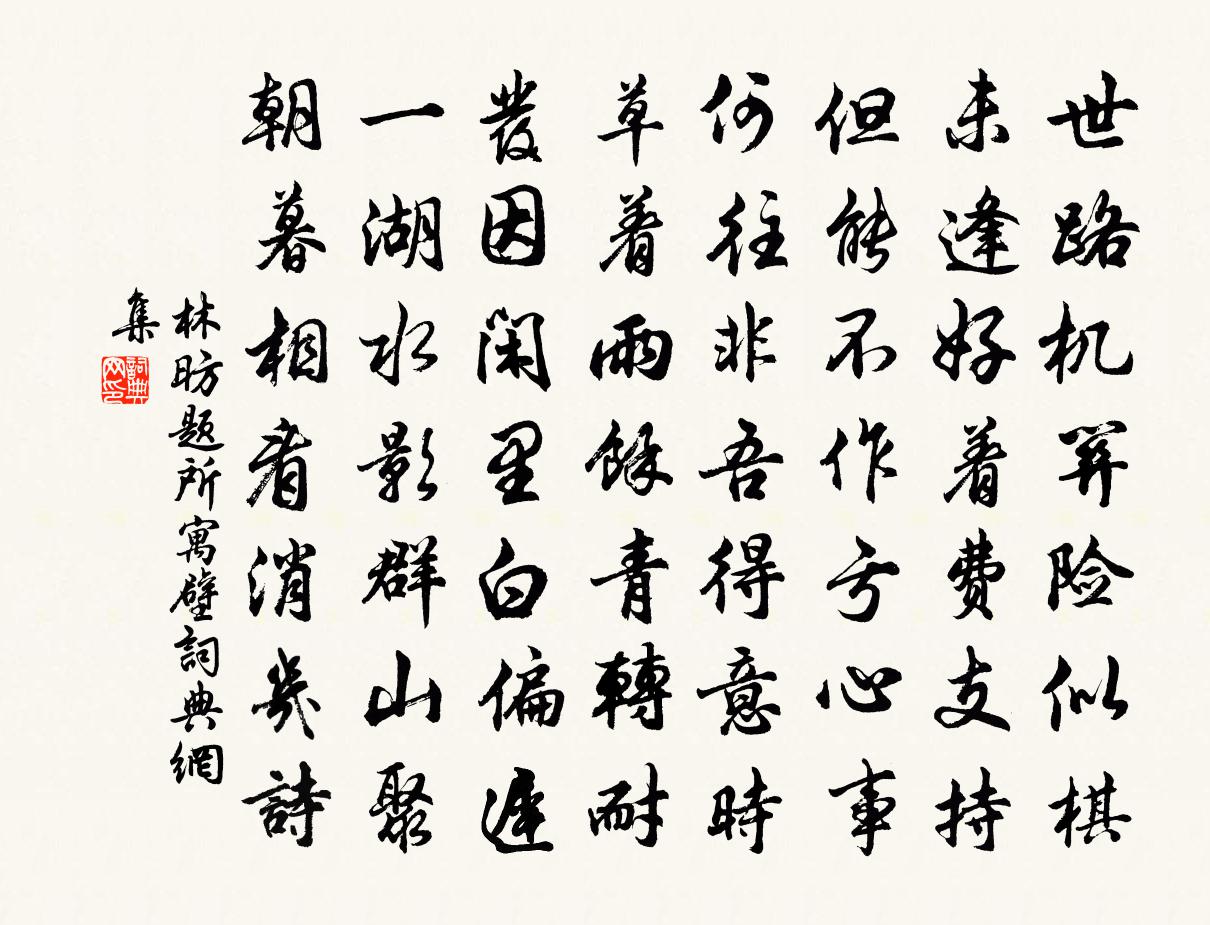 世路机關险似棋
未逢好着費支持
但能不作亏心事
何往非吾得意時
草着雨餘青轉耐
發因闲里白偏遲
一湖水影群山聚
朝暮相看消幾詩
林昉题所寓壁詞典網
集
詞典
网印